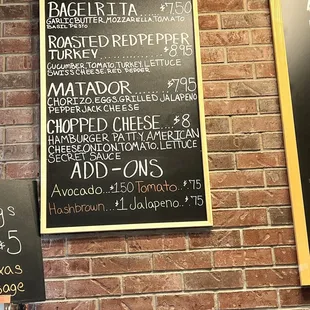 BAGELRITA....$7.50
GARLIC BUTTER, MOZZARELLA, TOMATO
BASIL PESTO
ROASTED RED PEPPER
TURKEY............$8.95
CUCUMBER, TOMATO, TURKEY, LETTUCE
SWISS CHEESE, RED PEPPER
MATADOR.......$7.95
CHORIZO, EGGS, GRILLED JALAPENO
PEPPERJACK CHEESE
CHOPPED CHEESE...$8
HAMBURGER PATTY, AMERICAN
CHEESE, ONION, TOMATO, LETTUCE
SECRET SAUCE
ADD-ONS
Avocado...$1.50 Tomato...$.75
Hashbrown...$1 Jalapeno..$.75
$5